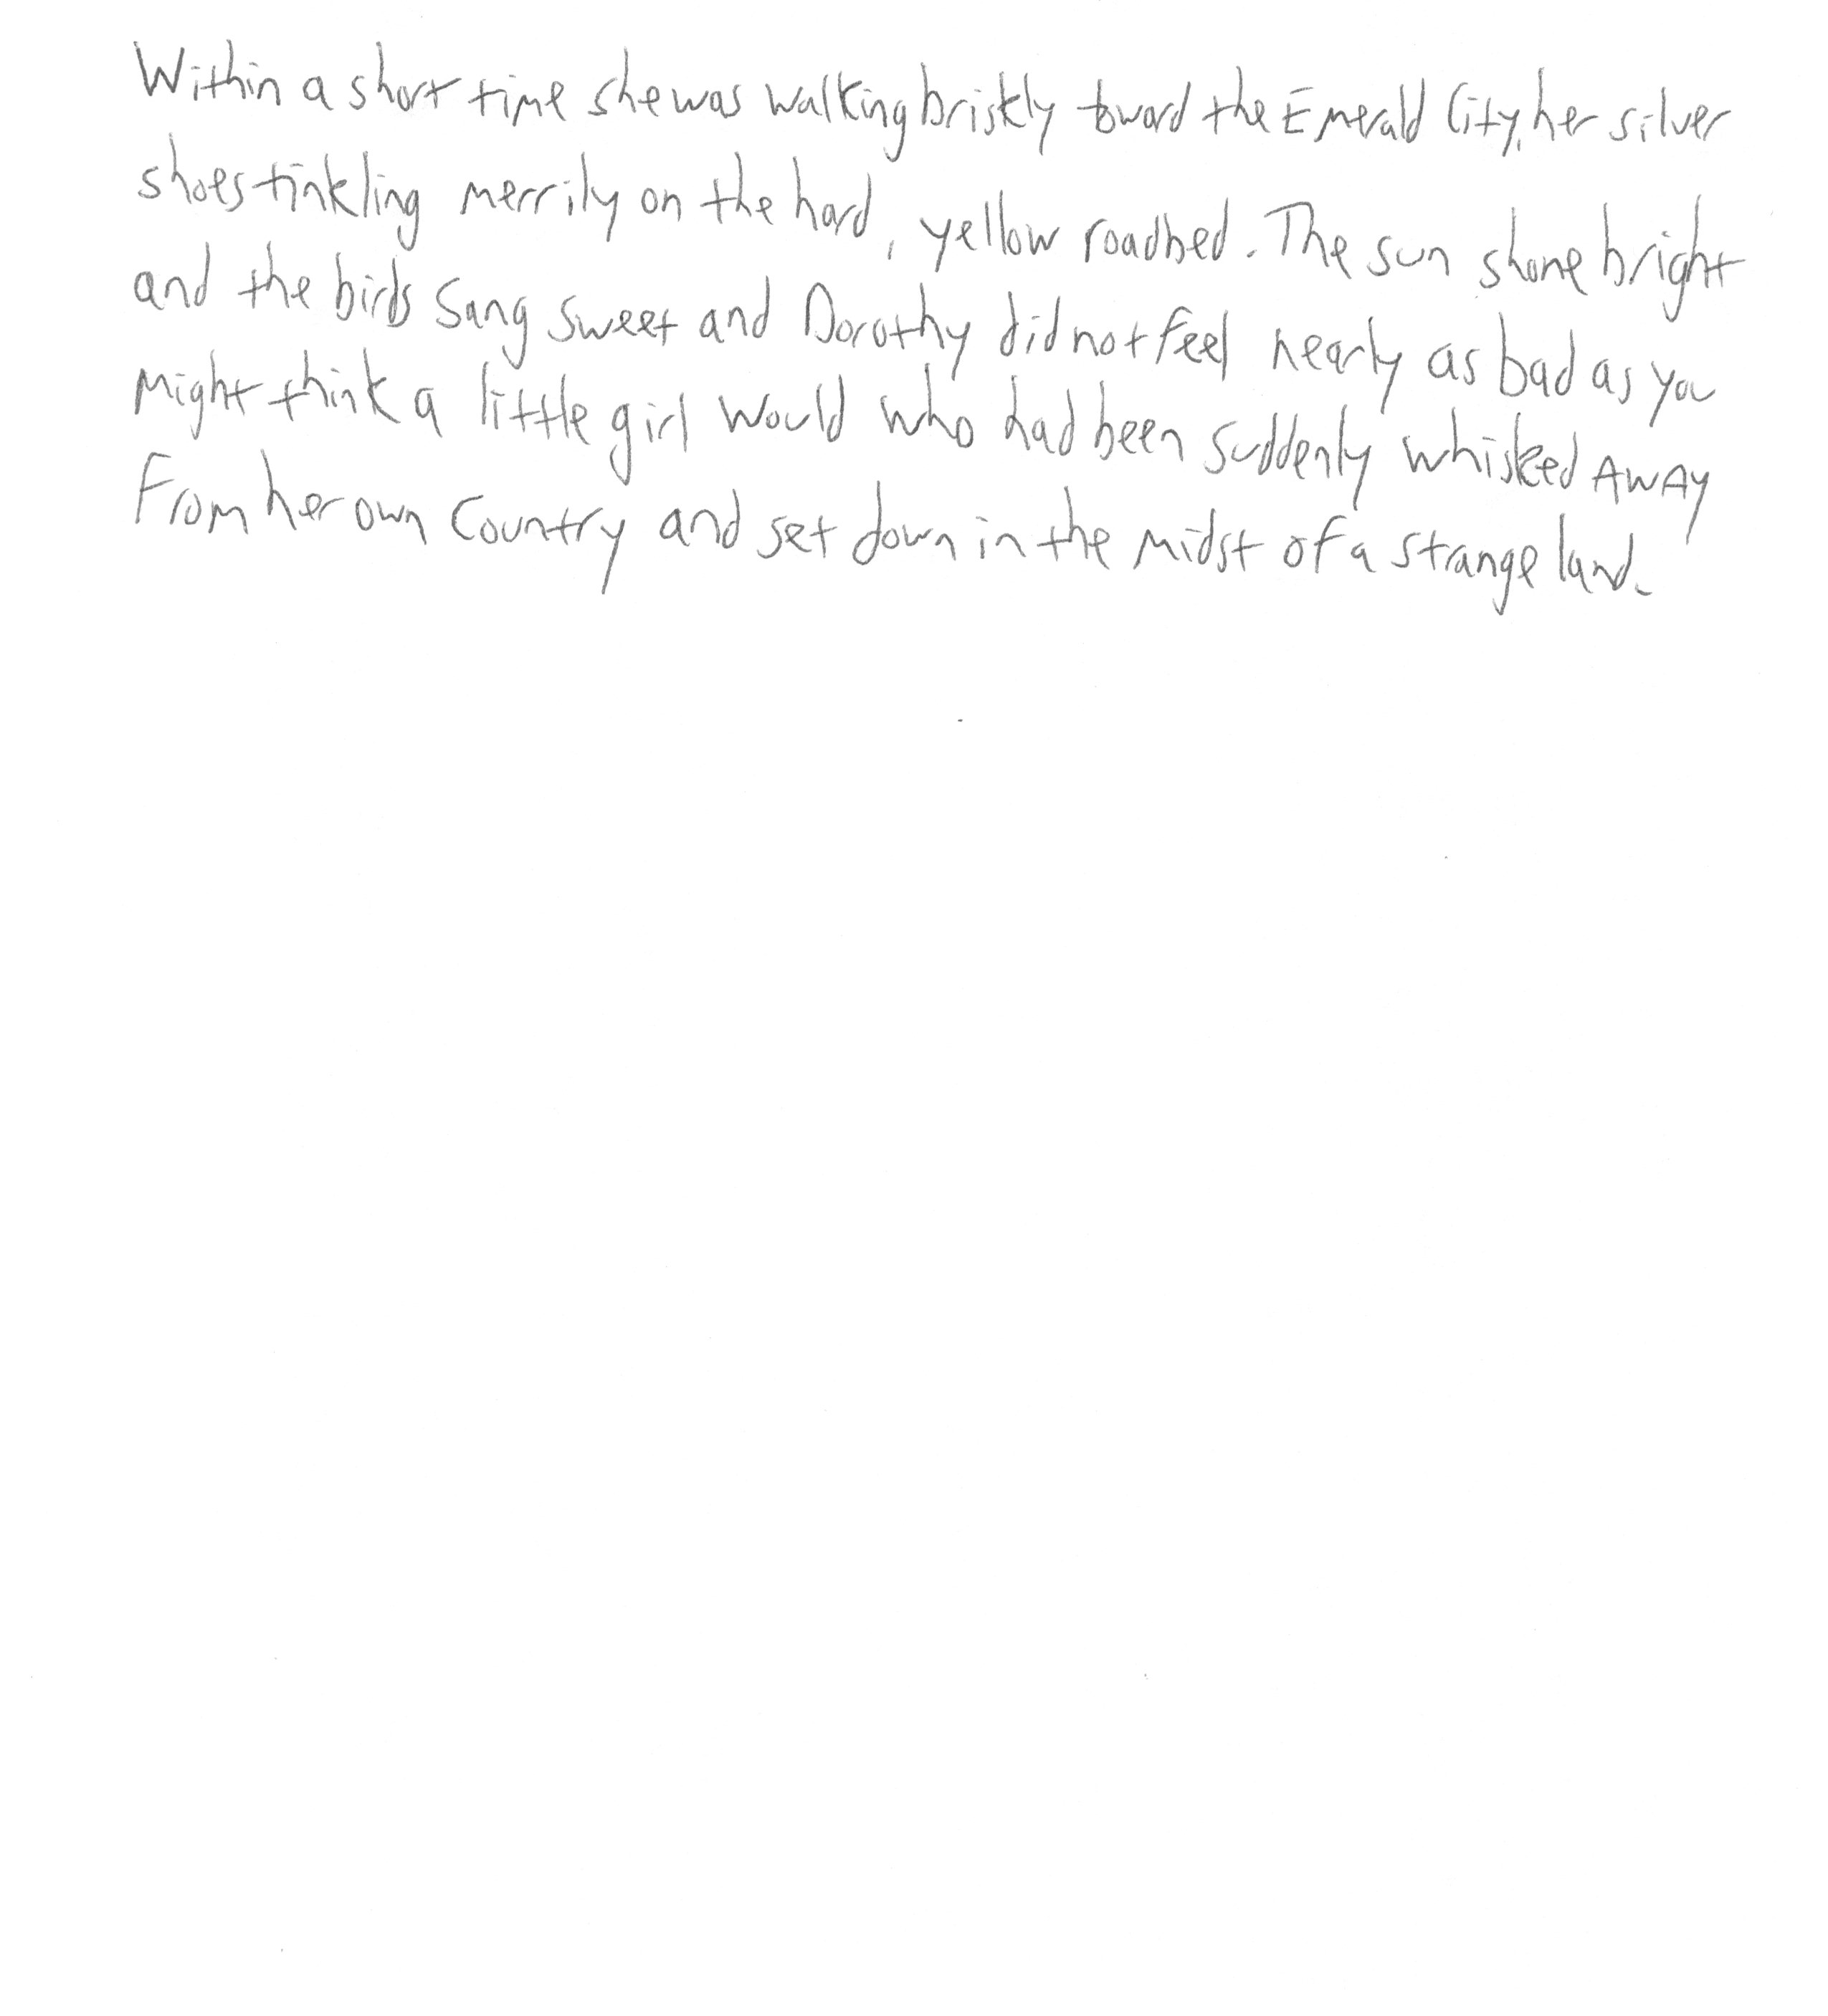 Within a short time she was walking briskly toward the Emerald City, her silver
shoes tinkling merrily on the hard, yellow roadbed. The sun shone bright
and the birds sang sweet and Dorothy did not feel nearly as bad as you
might think a little girl would who had been suddenly whisked away
from her own country and set down in the midst of a strange land.